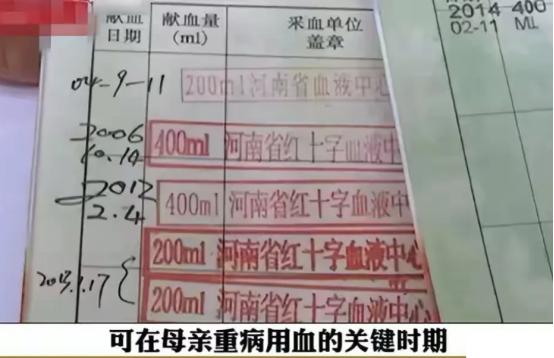 献血日期 献血量(ml) 采血单位盖章
04-9-11 200ml 河南省血液中心
2006 10.14 400ml 河南省红十字血液中
2012 2.4 400ml 河南省红十字血液中
200ml 河南省红十字血液中心
200ml 河南省红十字血液中心
2014 400
02-11 ML
可在母亲重病用血的关键时期